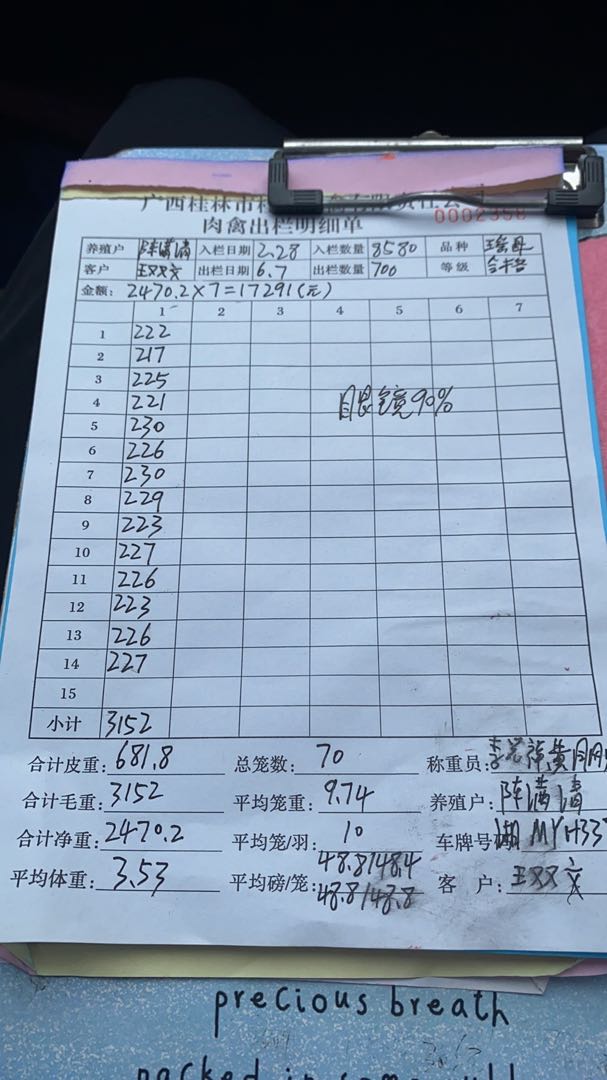 广西桂林市
肉禽出栏明细单 0002358
养殖户 陈满清 入栏日期 2.28 入栏数量 8580 品种
客户 王双文 出栏日期 6.7 出栏数量 700 等级
金额: 2470.2×7=17291(元)
1 2 3 4 5 6 7
1 222
2 217
3 225
4 221 眼镜90%
5 230
6 226
7 230
8 229
9 223
10 227
11 226
12 223
13 226
14 227
15
小计 3152
合计皮重: 681.8 总笼数: 70 称重员:
合计毛重: 3152 平均笼重: 9.74 养殖户: 陈满清
合计净重: 2470.2 平均笼/羽: 10 车牌号码: 湘 MYH33
48.8/48.4
平均体重: 3.53 平均磅/笼: 48.8/48.8 客 户: 王双文
precious breath